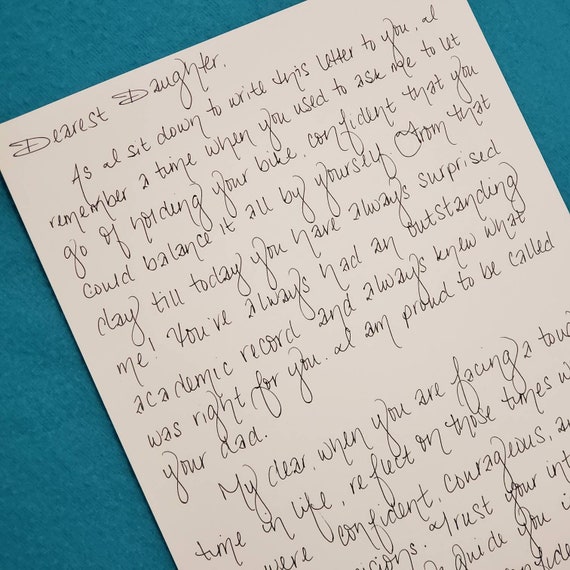 Dearest Daughter,
As I sit down to write this letter to you, I
remember a time when you used to ask me to let
go of holding your bike, confident that you
could balance it all by yourself. From that
day till today you have always surprised
me! You've always had an outstanding
academic record and always knew what
was right for you. I am proud to be called
your dad.
My dear, when you are facing a
time in life, reflect on those times
were confident, courageous,
Trust your
guide you